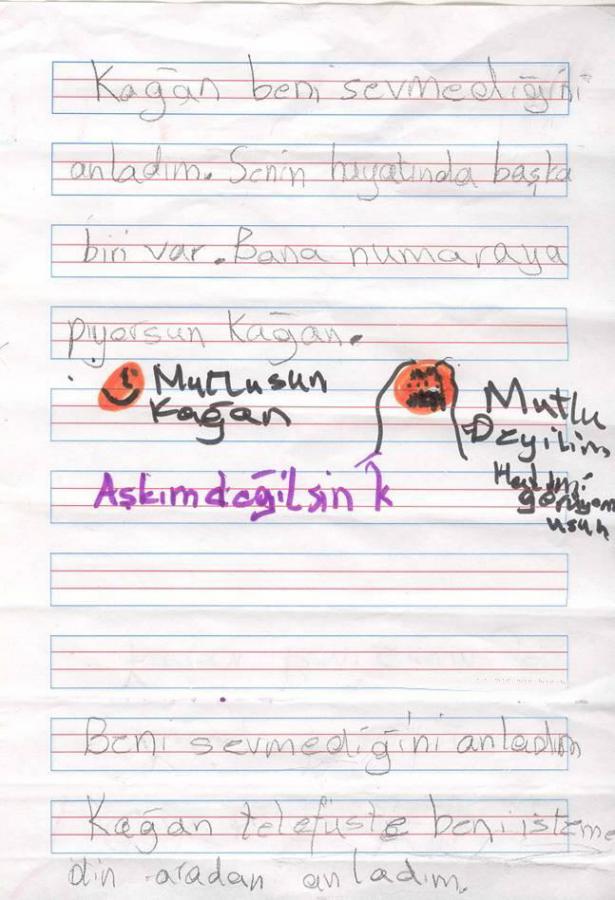 Kağan beni sevmediğini
anladım. Senin hayatında başka
biri var. Bana numaraya
pıyorsun Kağan.
Mutlusun
Kağan
Mutlu
Deyilim
Halimi
görüyom
usun
Aşkım değilsin k
Beni sevmediğini anladım
Kağan telefüste beni isteme
din aradan anladım.